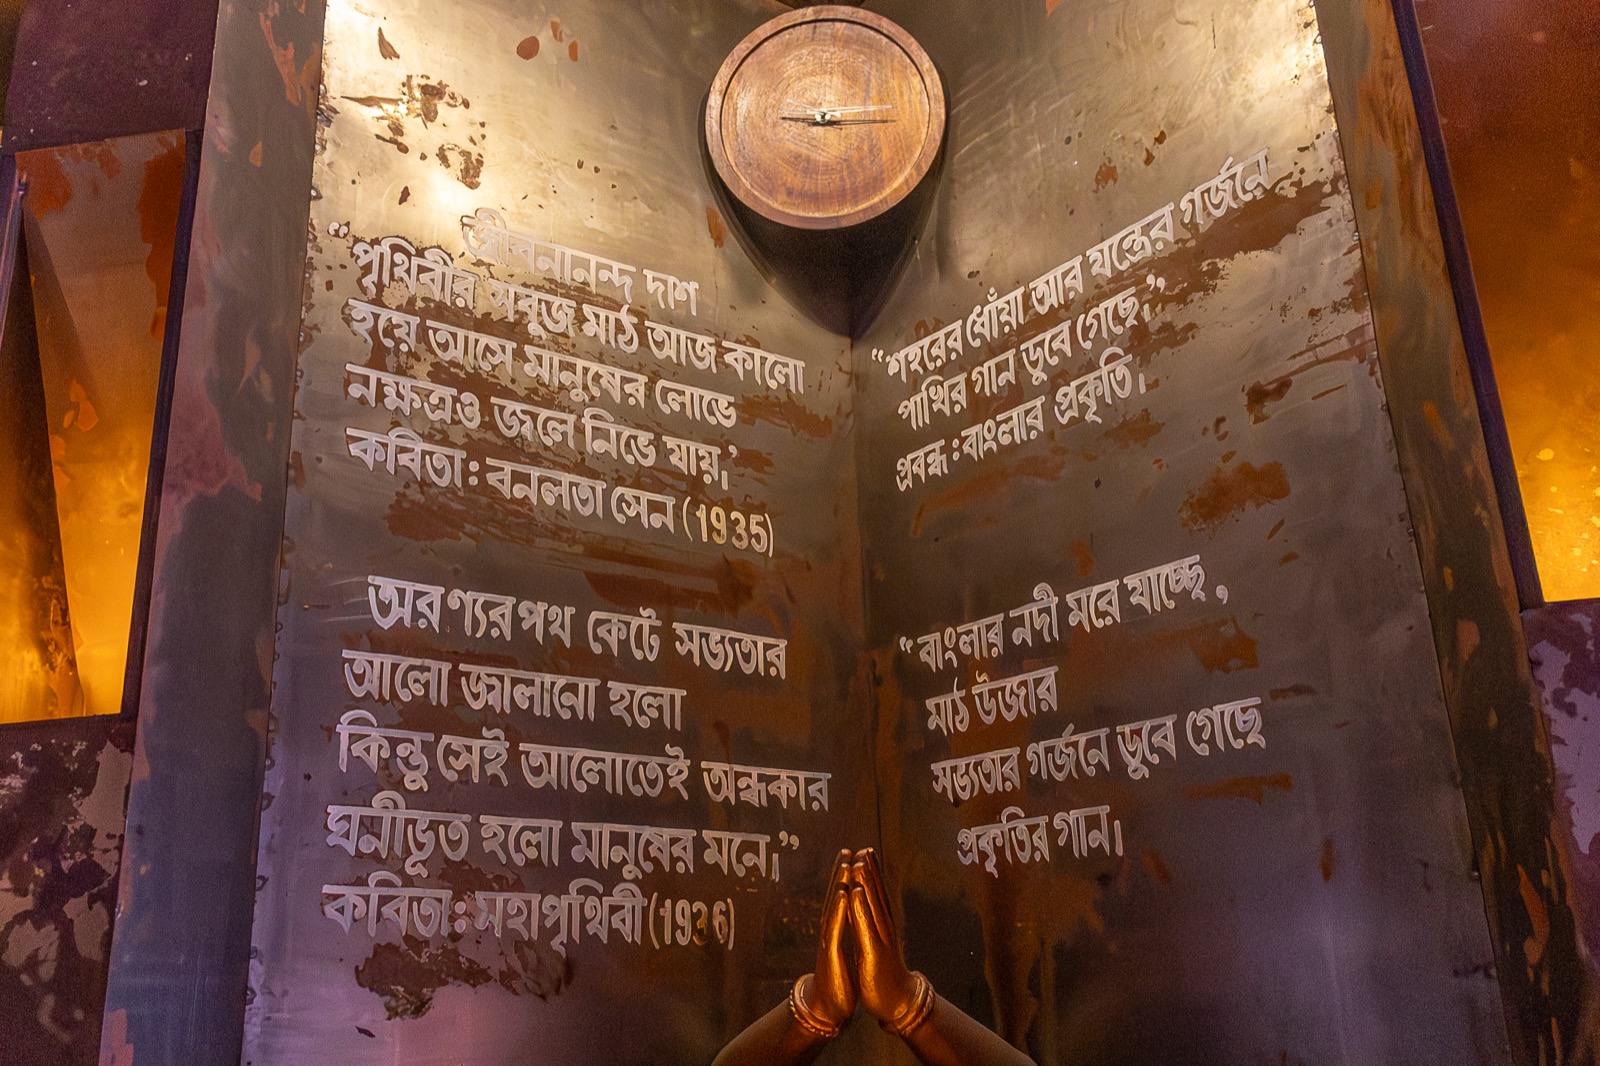 জীবনানন্দ দাশ
“পৃথিবীর সবুজ মাঠ আজ কালো
হয়ে আসে মানুষের লোভে
নক্ষত্রও জলে নিভে যায়।’
কবিতা: বনলতা সেন (1935)
অরণ্যর পথ কেটে সভ্যতার
আলো জ্বালানো হলো
কিন্তু সেই আলোতেই অন্ধকার
ঘনীভূত হলো মানুষের মনে।”
কবিতা: মহাপৃথিবী (1936)
“শহরের ধোঁয়া আর যন্ত্রের গর্জনে
পাখির গান ডুবে গেছে।”
প্রবন্ধ : বাংলার প্রকৃতি।
“বাংলার নদী মরে যাচ্ছে,
মাঠ উজার
সভ্যতার গর্জনে ডুবে গেছে
প্রকৃতির গান।